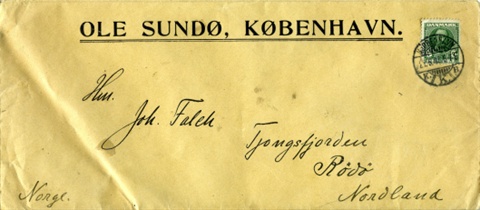 OLE SUNDØ, KØBENHAVN.
DANMARK
Hrn.
Joh. Falch
Tjongsfjorden
Rødø
Nordland
Norge.